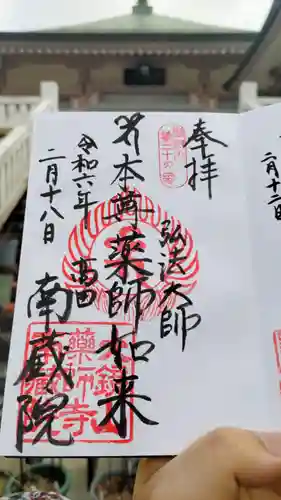 奉拝
弘法大師
本尊薬師如来
高田
南蔵院
令和六年
二月十八日
二月十二日